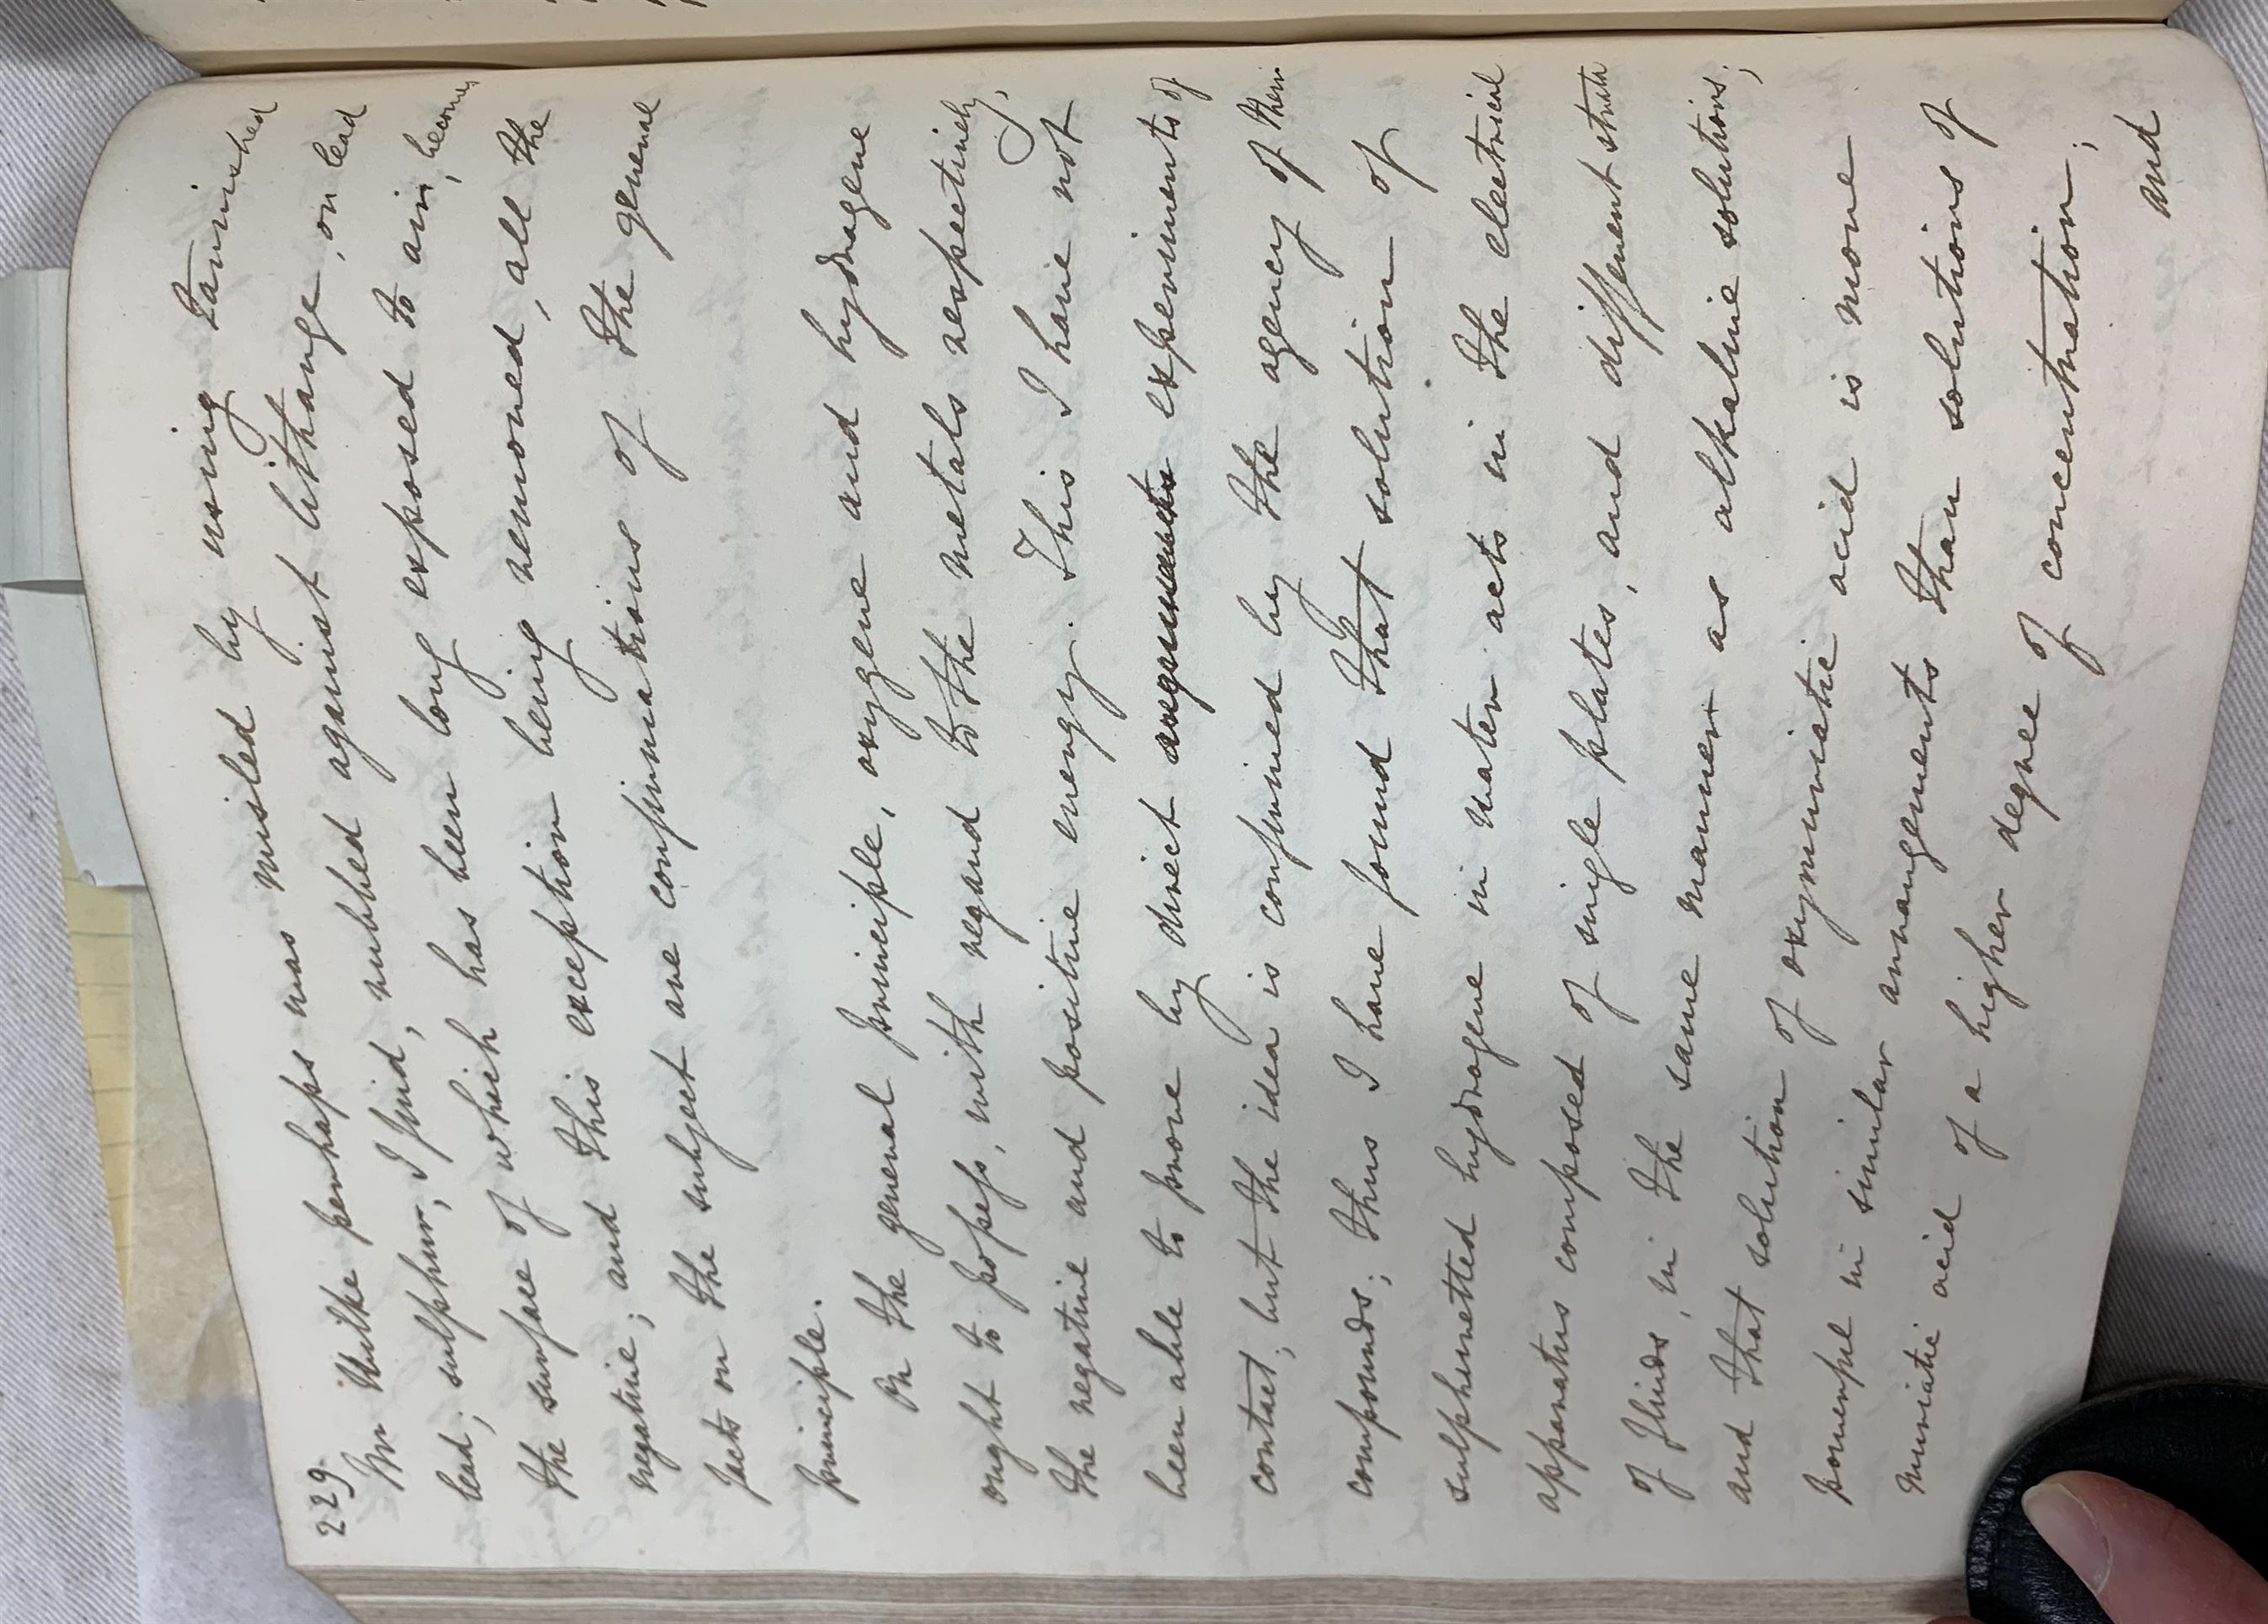 229.
Mr Wilke perhaps was misled by using tarnished
lead; sulphur, I find, rubbed against litharge, or lead
the surface of which has been long exposed to air, becomes
negative; and this exception being removed, all the
facts on the subject are confirmations of the general
principle.
On the general principle, oxygene and hydrogene
ought to possess, with regard to the metals respectively,
the negative and positive energy. This I have not
been able to prove by direct experiments of
contact; but the idea is confirmed by the agency of their
compounds; thus I have found that solution of
sulphuretted hydrogene in water acts in the electrical
apparatus composed of single plates, and different strata
of fluids, in the same manner as alkaline solutions;
and that solution of oxymuriatic acid is more
powerful in similar arrangements than solutions of
muriatic acid of a higher degree of concentration;
and